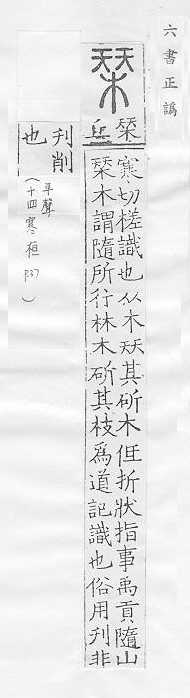 六書正譌
栞
丘
寒切槎識也从木其斫木仾折狀指事禹貢隨山
栞木謂隨所行林木斫其枝爲道記識也俗用刋非
刋削
也
平聲
(十四寒桓 P37)